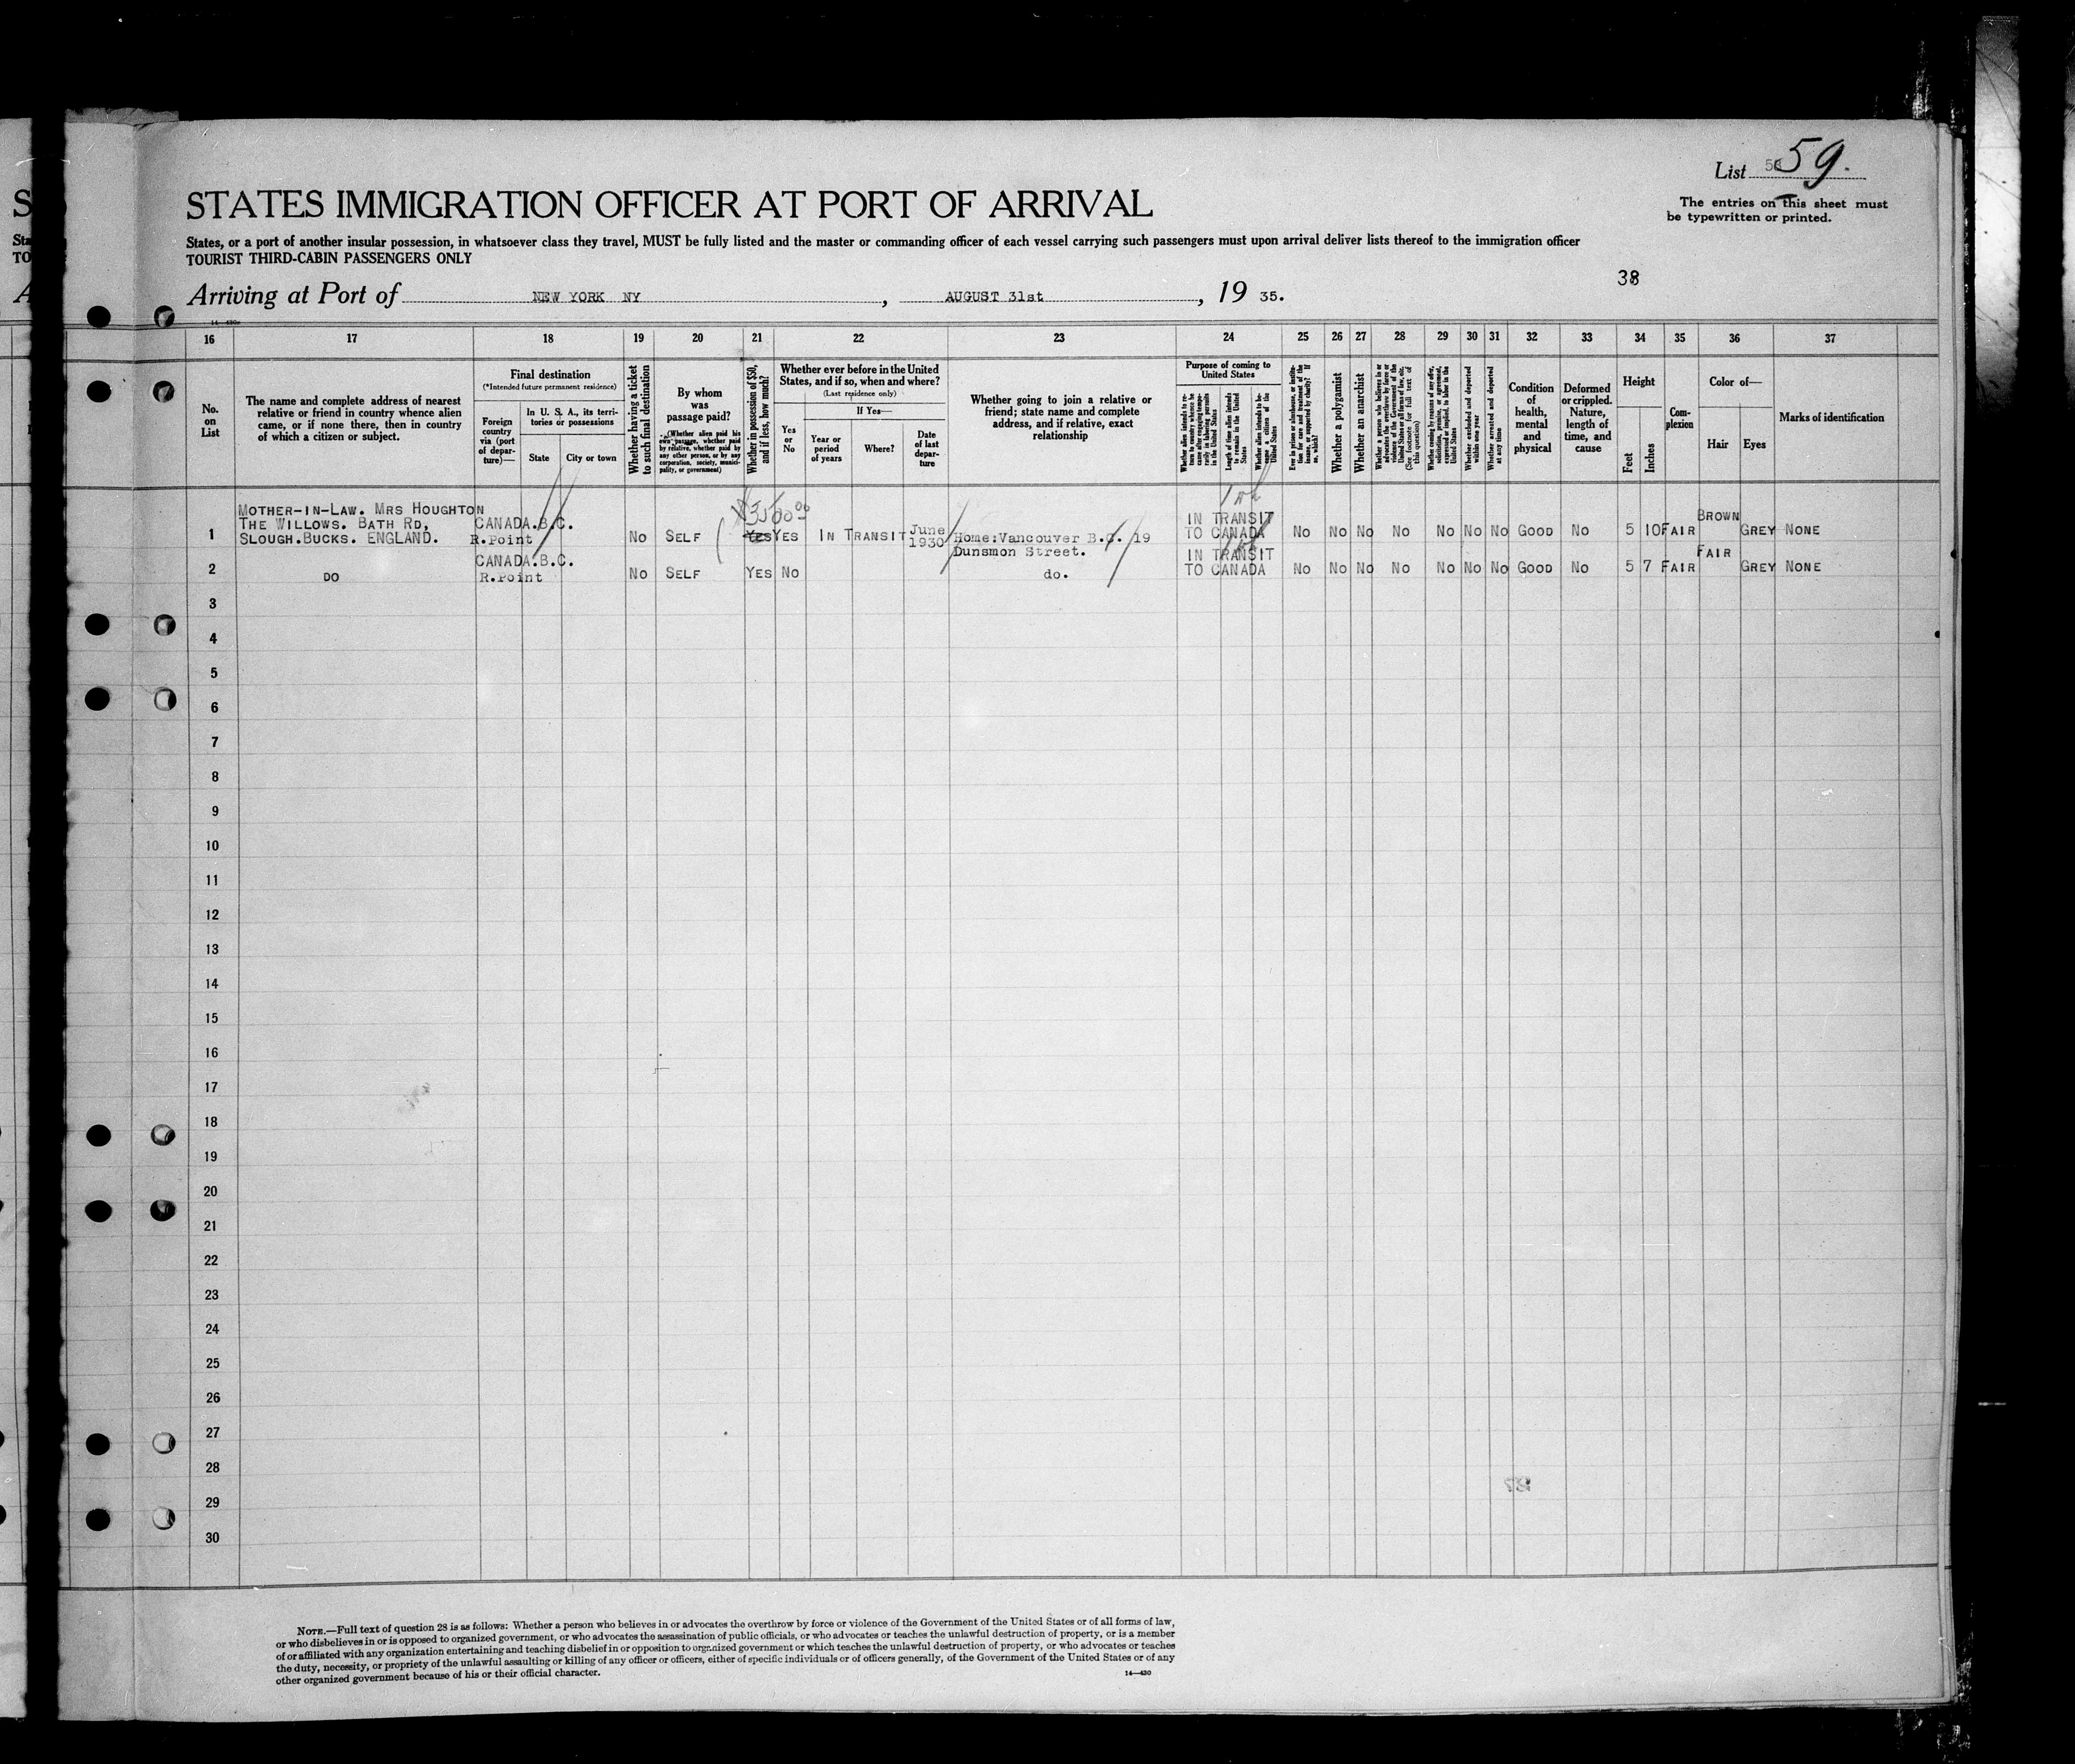 List 59.
The entries on this sheet must
be typewritten or printed.
STATES IMMIGRATION OFFICER AT PORT OF ARRIVAL
States, or a port of another insular possession, in whatsoever class they travel, MUST be fully listed and the master or commanding officer of each vessel carrying such passengers must upon arrival deliver lists thereof to the immigration officer
TOURIST THIRD-CABIN PASSENGERS ONLY
38
Arriving at Port of NEW YORK NY, AUGUST 31st, 19 35.
16 17 18 19 20 21 22 23 24 25 26 27 28 29 30 31 32 33 34 35 36 37
No. on List
The name and complete address of nearest
relative or friend in country whence alien
came, or if none there, then in country
of which a citizen or subject.
Final destination
(*Intended future permanent residence)
Foreign country via (port of departure)—
In U. S. A., its territories or possessions
State
City or town
Whether having a ticket to such final destination
By whom was passage paid?
(Whether alien paid his own passage, whether paid by relative, whether paid by any other person, or by any corporation, society, municipality, or government)
Whether in possession of $50, and if less, how much?
Whether ever before in the United States, and if so, when and where?
(Last residence only)
Yes or No
If Yes—
Year or period of years
Where?
Date of last departure
Whether going to join a relative or
friend; state name and complete
address, and if relative, exact
relationship
Purpose of coming to United States
Whether alien intends to return to country whence he came after engaging temporarily in laboring pursuits in the United States
Length of time alien intends to remain in the United States
Whether alien intends to become a citizen of the United States
Ever in prison or almshouse, or institution for care and treatment of the insane, or supported by charity? If so, which?
Whether a polygamist
Whether an anarchist
Whether a person who believes in or advocates the overthrow by force or violence of the Government of the United States or all forms of law, etc. (See footnote for full text of this question)
Whether coming by reasons of any offer, solicitation, promise, or agreement, expressed or implied, to labor in the United States
Whether excluded and deported within one year
Whether arrested and deported at any time
Condition of health, mental and physical
Deformed or crippled. Nature, length of time, and cause
Height
Feet
Inches
Complexion
Color of—
Hair
Eyes
Marks of identification
1 MOTHER-IN-LAW. MRS HOUGHTON
THE WILLOWS. BATH RD,
SLOUGH.BUCKS. ENGLAND.
CANADA.B.C.
R.Point
No SELF $3500 00 YES YES IN TRANSIT June 1930 Home:Vancouver B.C. 19
Dunsmon Street.
IN TRANSIT
TO CANADA
No No No No No No No GOOD No 5 10 FAIR BROWN GREY NONE
2 DO
CANADA.B.C.
R.Point
No SELF YES No do.
IN TRANSIT
TO CANADA
No No No No No No No GOOD No 5 7 FAIR FAIR GREY NONE
3
4
5
6
7
8
9
10
11
12
13
14
15
16
17
18
19
20
21
22
23
24
25
26
27
28
29
30
NOTE.—Full text of question 28 is as follows: Whether a person who believes in or advocates the overthrow by force or violence of the Government of the United States or of all forms of law,
or who disbelieves in or is opposed to organized government, or who advocates the assassination of public officials, or who advocates or teaches the unlawful destruction of property, or is a member
of or affiliated with any organization entertaining and teaching disbelief in or opposition to organized government or which teaches the unlawful destruction of property, or who advocates or teaches
the duty, necessity, or propriety of the unlawful assaulting or killing of any officer or officers, either of specific individuals or of officers generally, of the Government of the United States or of any
other organized government because of his or their official character.
14—430